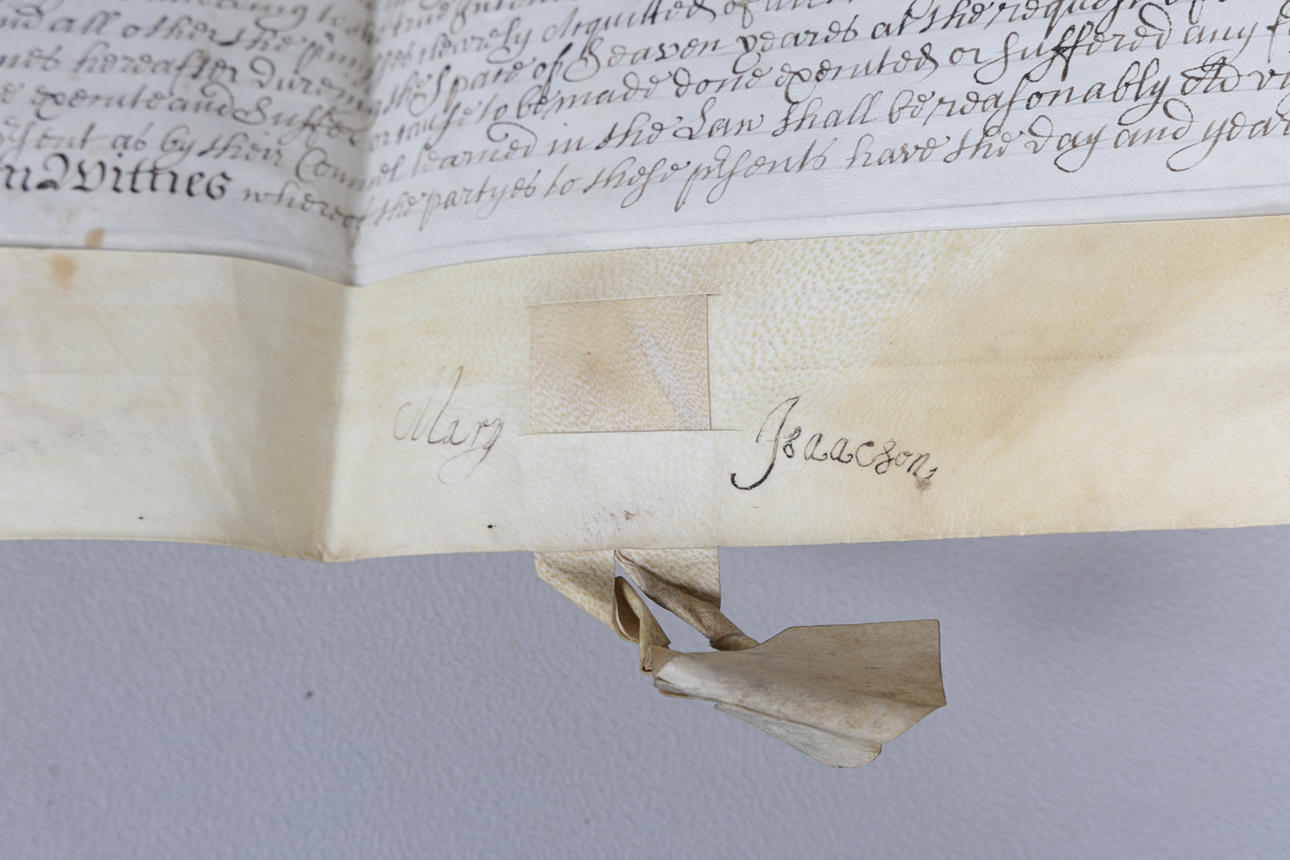 and all other the
es clearely Acquitted of
mes hereafter dureing the Space of Seaven yeares at the request
e execute and Suffer or cause to be made done executed or Suffered any
psent as by their Councel learned in the Law shall be reasonably
In Witnes whereof the partyes to these psents have the Day and year
Mary Isaacson,